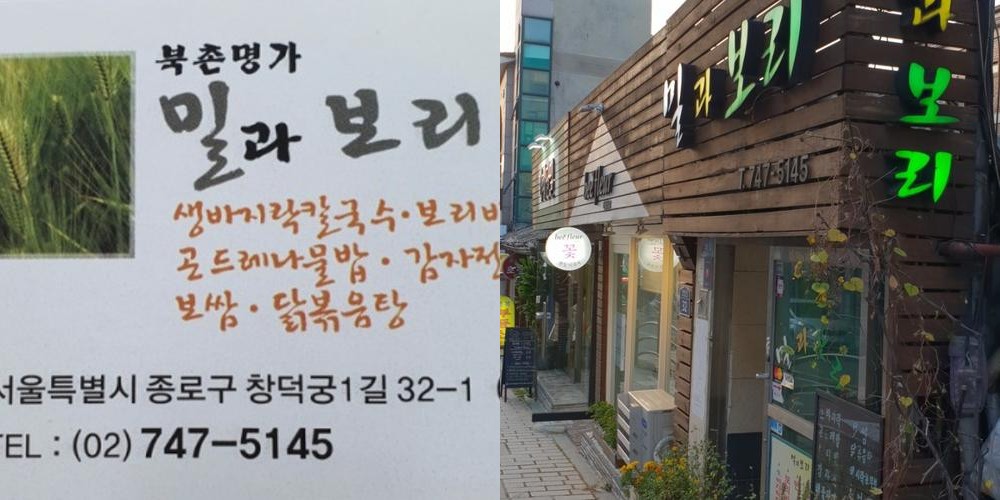 북촌명가
밀과 보리
생바지락칼국수·보리비
곤드레나물밥·감자전
보쌈·닭볶음탕
서울특별시 종로구 창덕궁1길 32-1
TEL : (02) 747-5145
밀과보리
과
보
리
T.747-5145
bee fleur
bee fleur
꽃